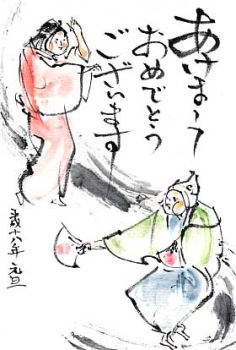 あけまして
おめでとう
ございます
十八年 元旦